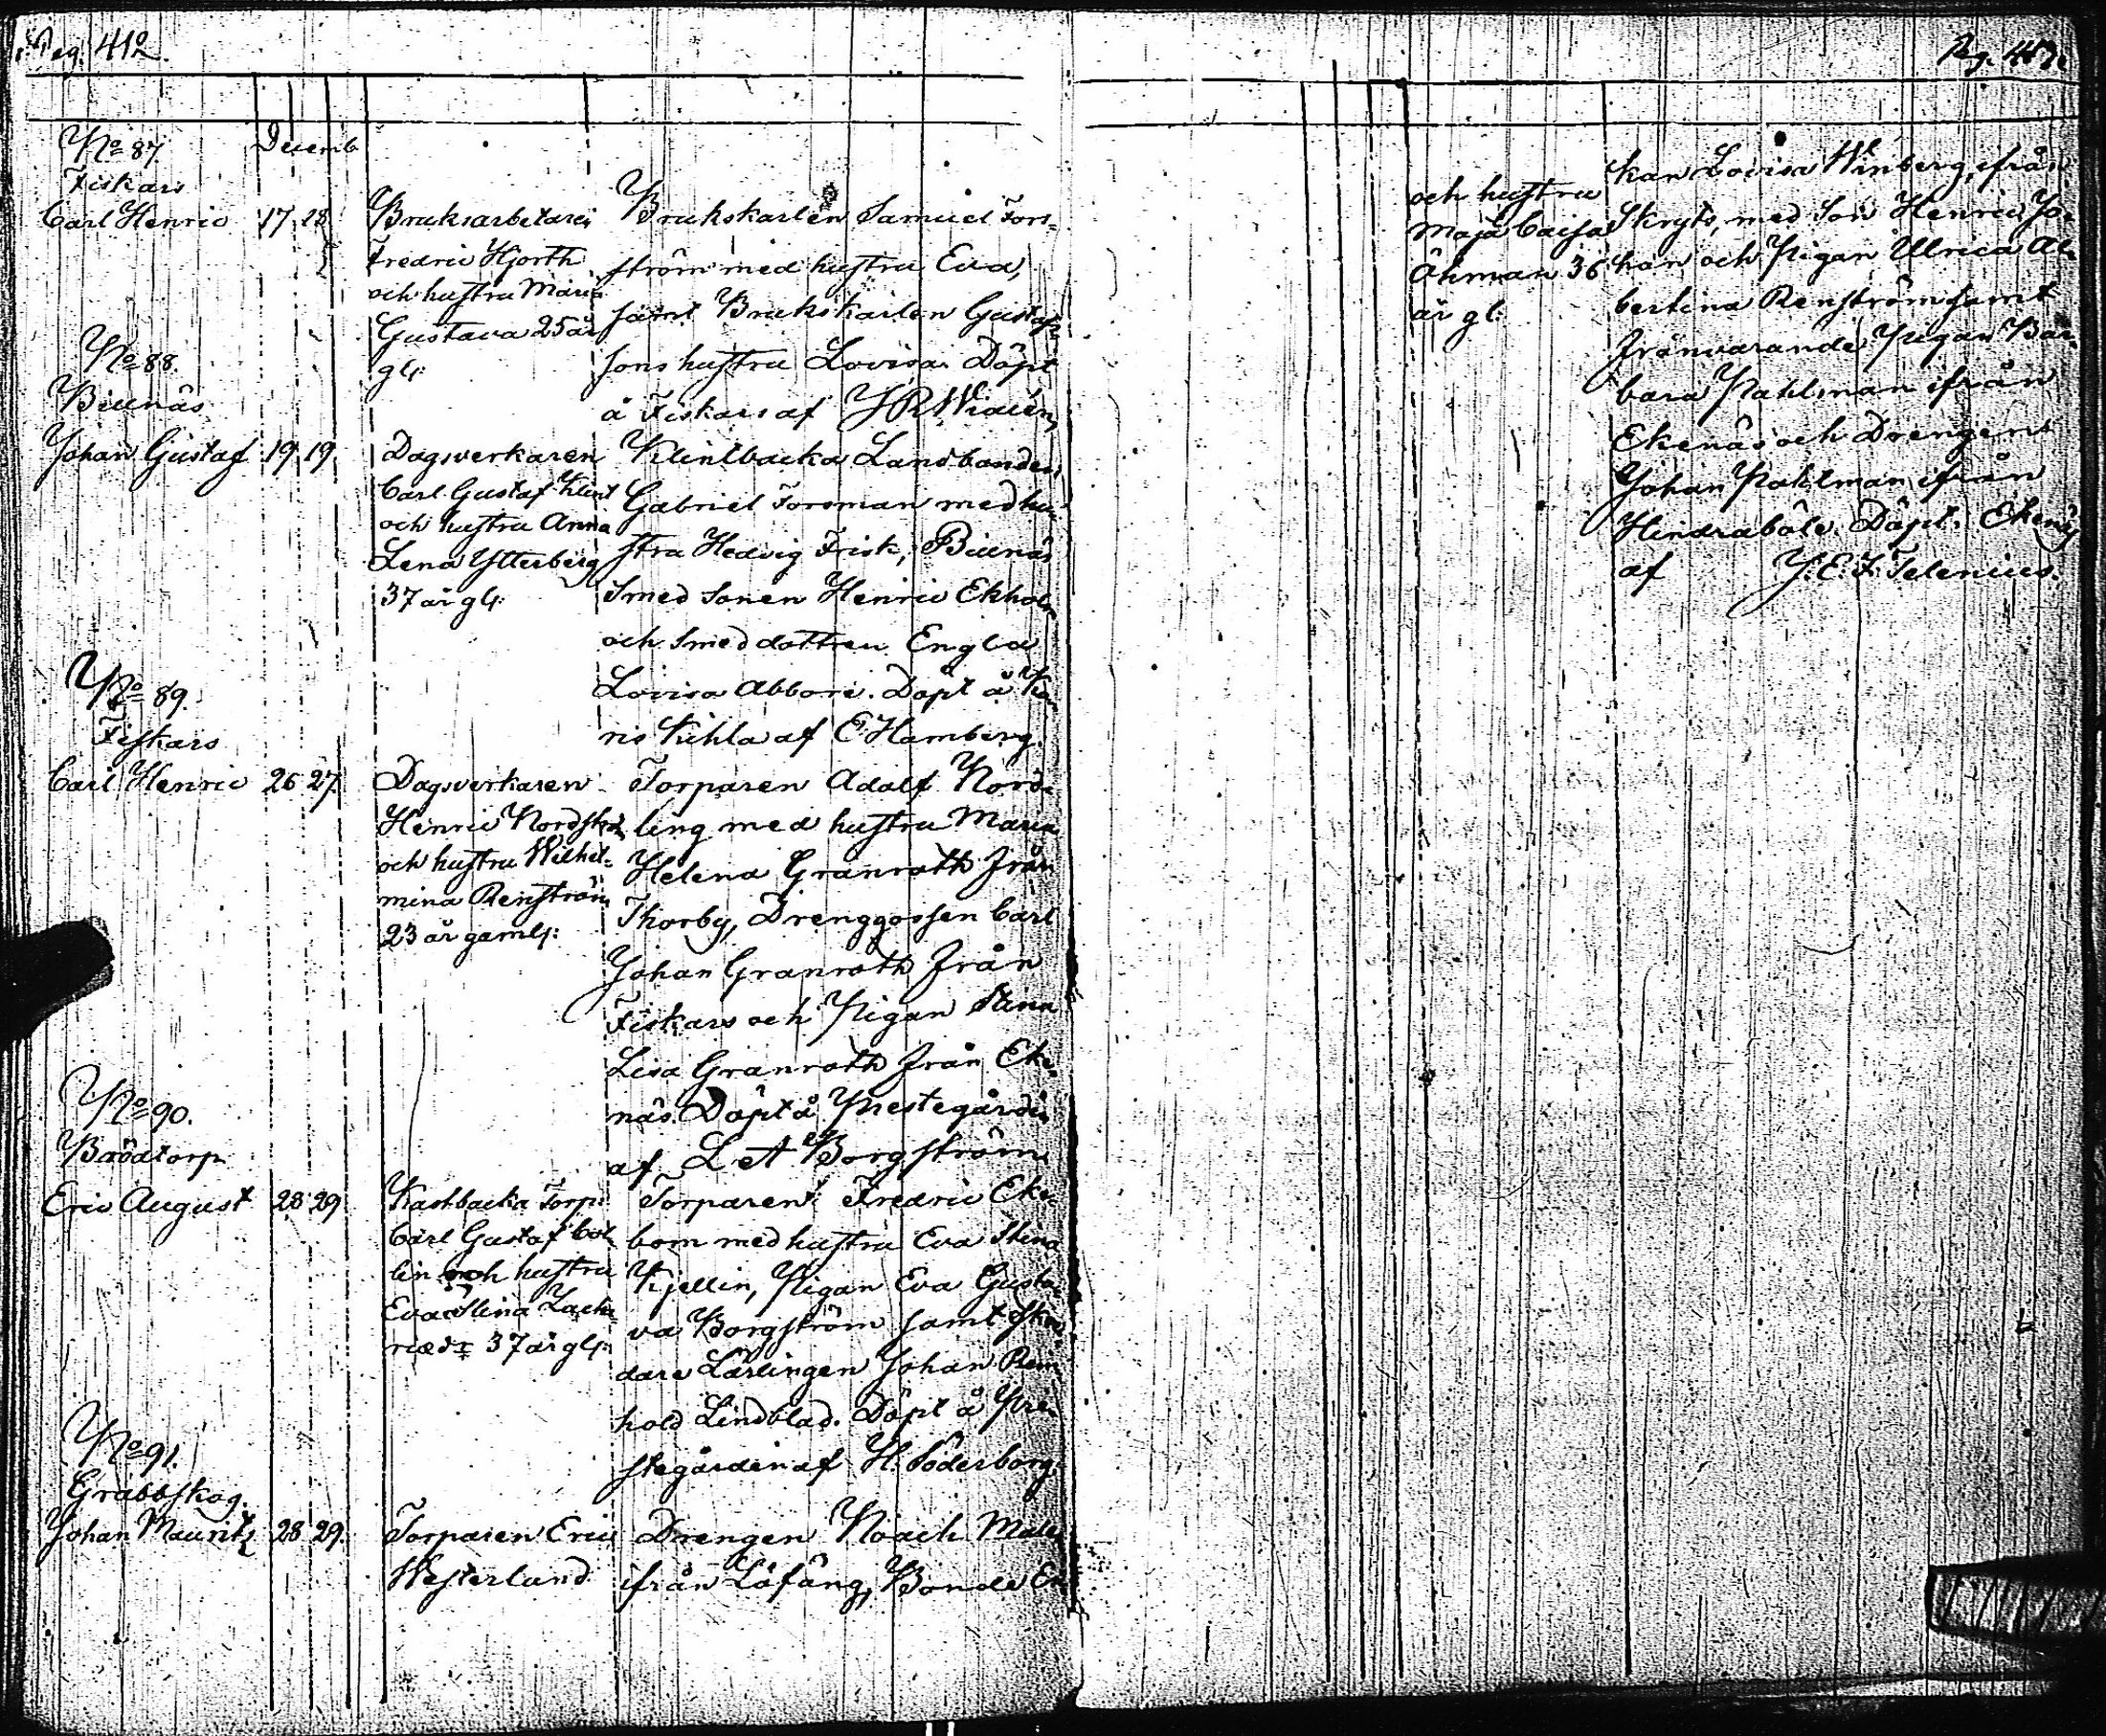 Pag. 412
Decemb
No 87.
Fiskars
Carl Henric 17 18
Bruksarbetaren
Fredric Hjorth
och hustru Maria
Gustava 25 år
gl:
Brukskarlen Samuel Fors-
ström med hustru Eva,
samt Brukskarlen Gustafs-
sons hustru Lovisa. Döpt
å Fiskars af
No 88.
Billnäs
Johan Gustaf 19 19
Dagsverkaren
Carl Gustaf Klint
och hustru Anna
Lena Ytterberg
37 år gl:
Klintbacka Landbonden
Gabriel Forsman med hu-
stru Hedvig Frisk, Billnäs
Smed Sonen Henric Ekholm
och Smed dottren Engla
Lovisa Abbore. Döpt å Ka-
ris Kihla af E Hamberg.
No 89.
Fiskars
Carl Henric 26 27
Dagsverkaren
Henric
och hustru Wilhel-
mina Renström
23 år gaml:
Torparen Adolf Nord-
ling med hustru Maria
Helena Granroth från
Thorby, Drenggossen Carl
Johan Granroth från
Fiskars och Pigan Stina
Lisa Granroth från Eke-
näs. Döpt å Prestegården
af L A Borgström
No 90.
Brödtorp
Eric August 28 29
Kastbacka Torp:
Carl Gustaf Col-
lin och hustru
Eva Stina Zacha-
riæds 37 år gl:
Torparen Fredric Eke-
bom med hustru Eva Stina
Kjellin, Pigan Eva Gusta-
va Borgström samt Skra-
dare Lärlingen Johan Rein-
hold Lindblad. Döpt å Pre-
stegården af H. Söderborg.
No 91.
Grabbskog.
Johan Mauritz 28 29.
Torparen Eric
Westerlund
Drengen Noach
ifrån Löfång, Bonde En-
Pag. 413.
och hustru
Maja Caisa
Öhman 36
år gl:
kan Lovisa Winberg, ifrån
Skryts, med Son Henric Jo-
han och Pigan Ulrica Al-
bertina Renström samt
frånvarande Pigan Bar-
bara Pahlman ifrån
Ekenäs och Drengen
Johan Pahlman ifrån
Hindraböle. Döpt i Ekenäs
af J. E. F. Telenius.